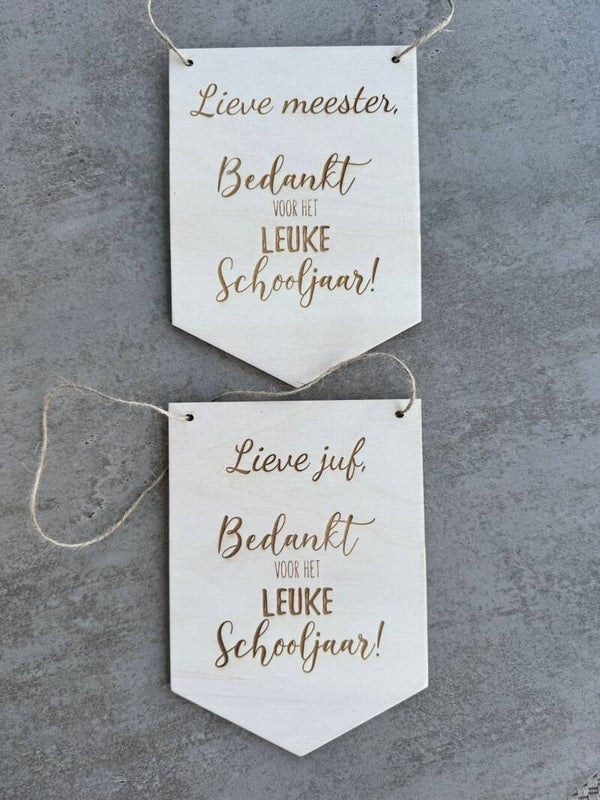 Lieve meester,
Bedankt
VOOR HET
LEUKE
Schooljaar!
Lieve juf,
Bedankt
VOOR HET
LEUKE
Schooljaar!